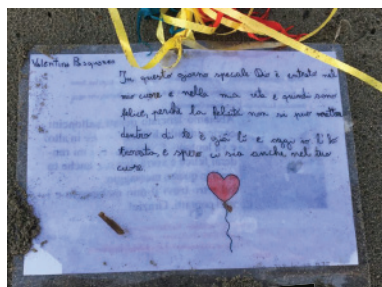 Valentina
In questo giorno speciale Dio è entrato nel
mio cuore e nella mia vita e quindi sono
felice, perché la felicità non si può mettere
dentro di te è già lì e oggi io l'ho
trovata, e spero ci sia anche nel tuo
cuore.